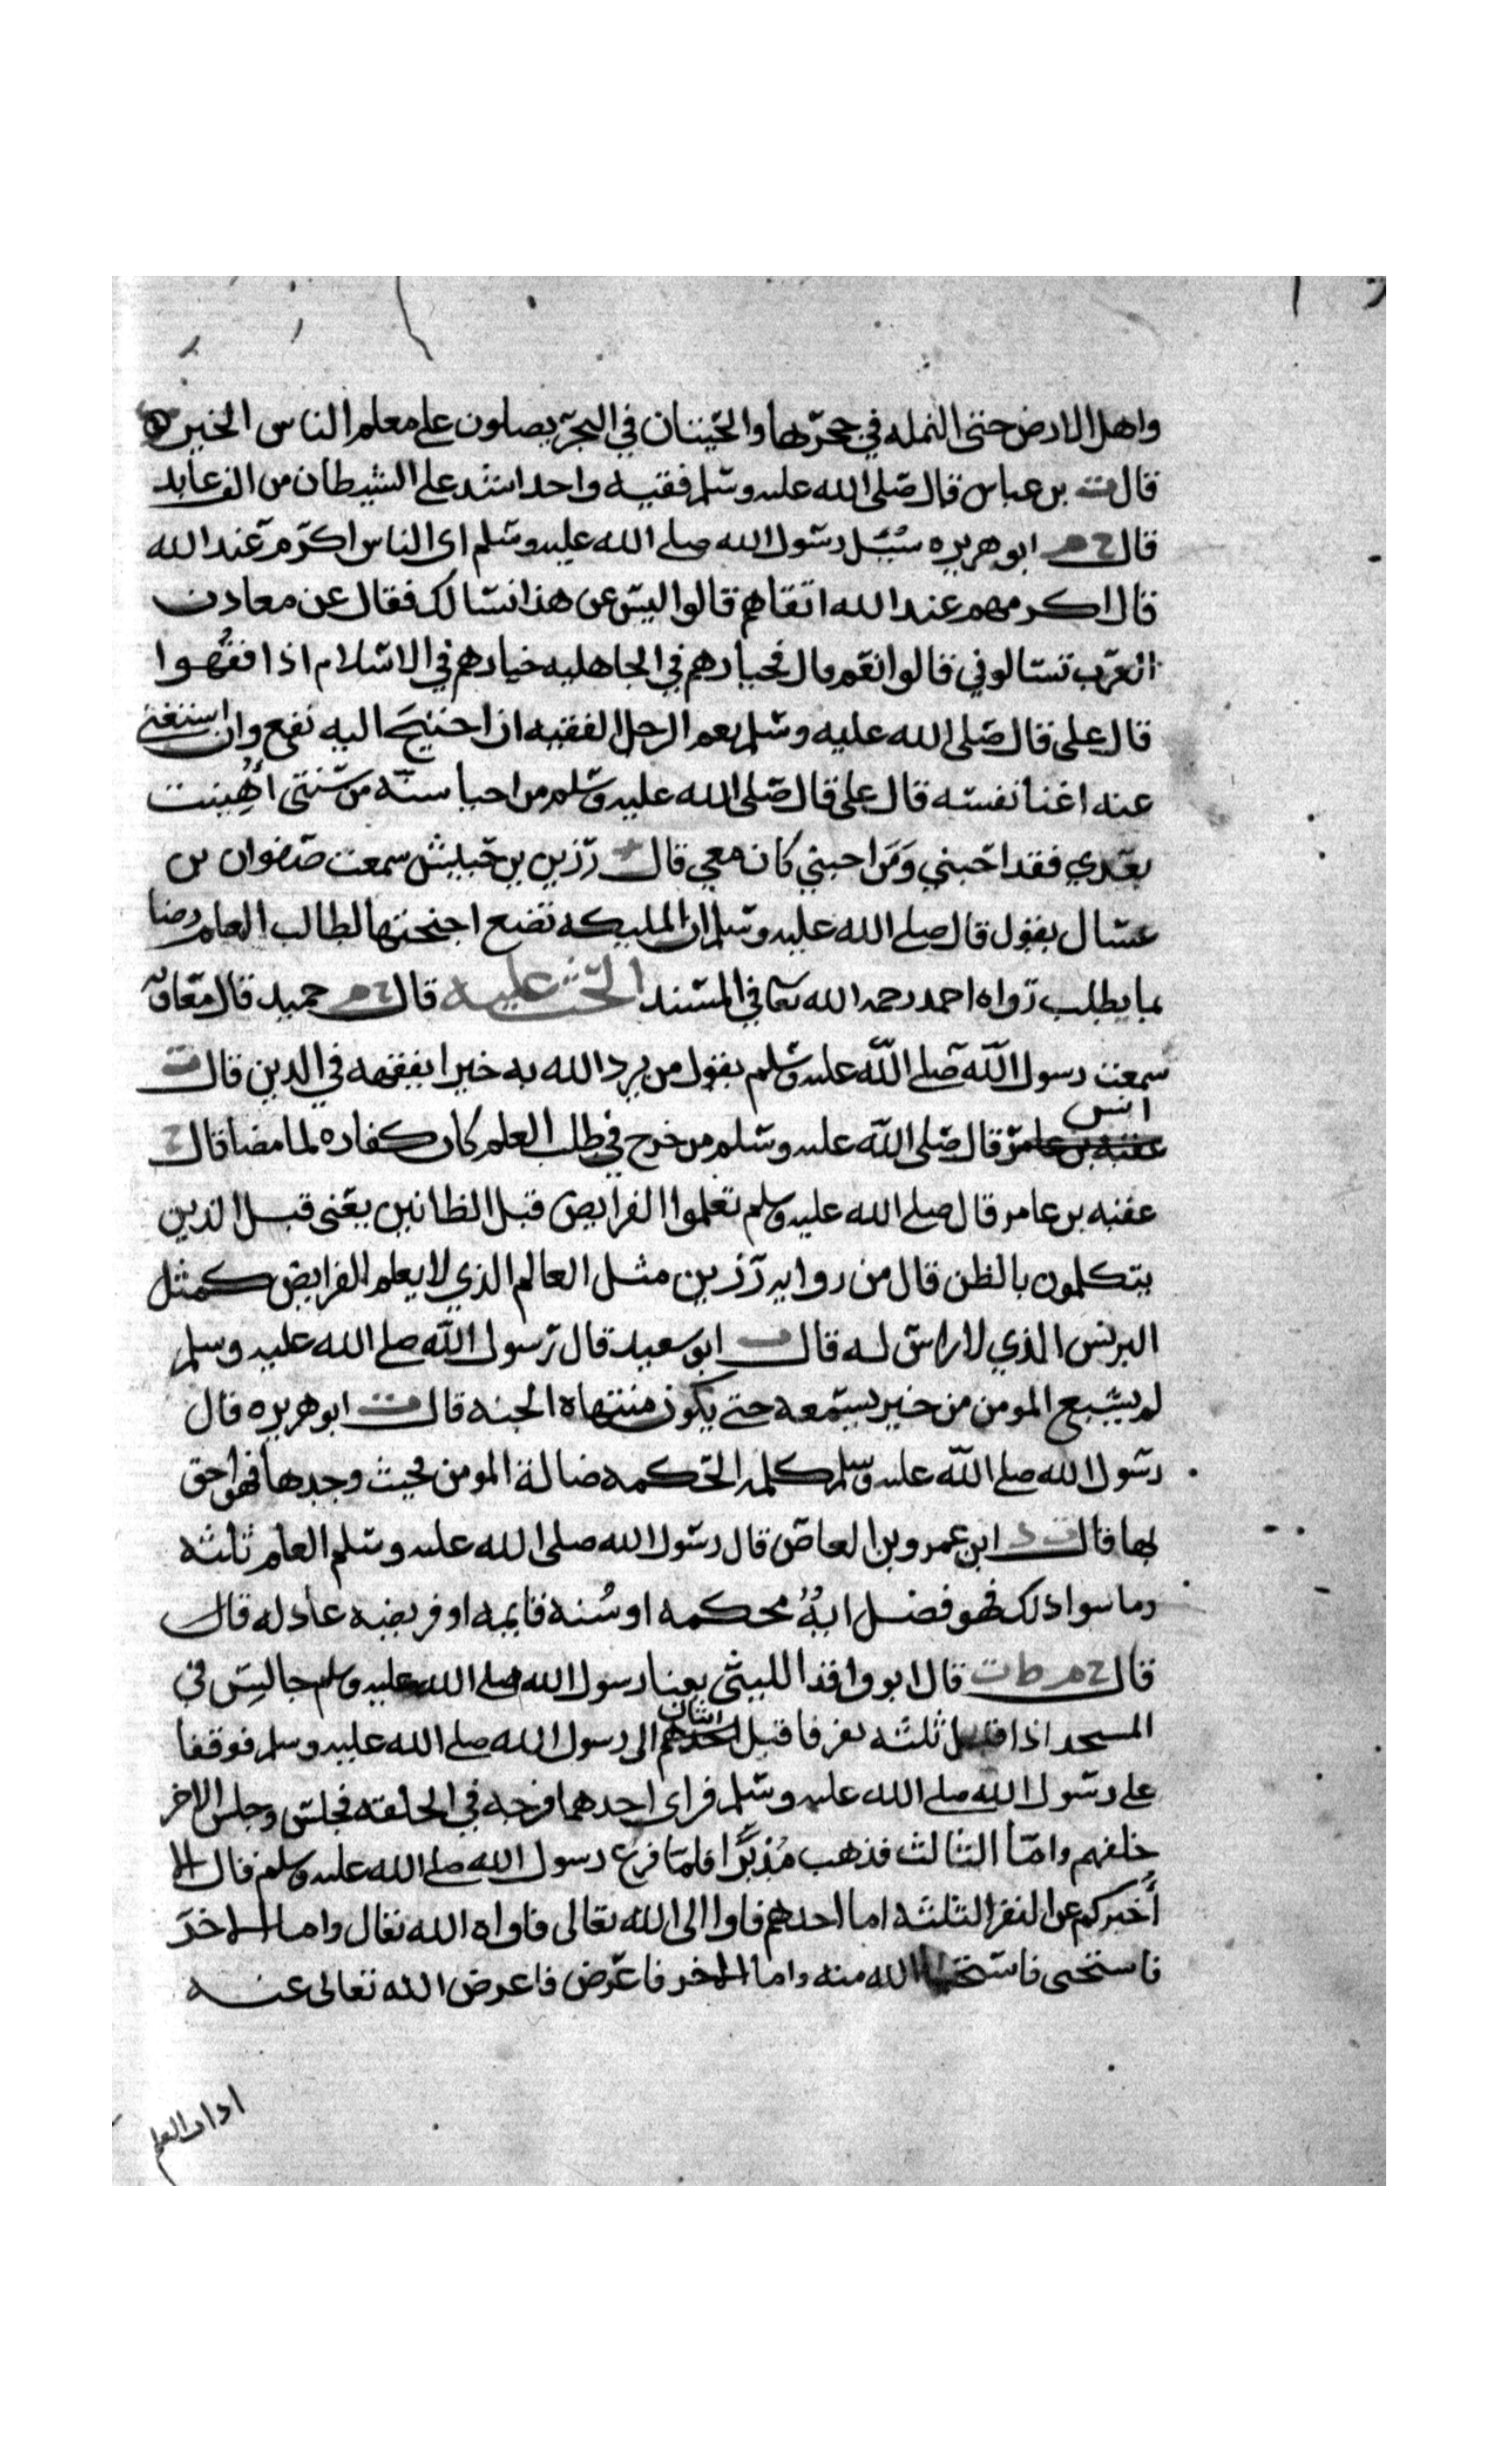 واهل الارض حتى النمله في جحرها والحيتان في البحر يصلون على معلم الناس الخير
قال ت بن عباس قال صلى الله عليه وسلم فقيه واحد اشد على الشيطان من الف عابد
قال خ م ابو هريره سُئل رسول الله صلى الله عليه وسلم اي الناس اكرم عند الله
قال اكرمهم عند الله اتقاهم قالوا ليس عن هذا نسالك فقال عن معادن
العرب تسالوني قالوا نعم قال فخيارهم في الجاهليه خيارهم في الاسلام اذا فقُهوا
قال علي قال صلى الله عليه وسلم نعم الرجل الفقيه ان احتيج اليه نفع وان استغني
عنه اغنا نفسه قال علي قال صلى الله عليه وسلم من احيا سنّة من سنتي اُمِيتت
بعدي فقد احبني وَمَن احبني كان معي قال ت رزين بن حبيش سمعت صفوان بن
عسال يقول قال صلى الله عليه وسلم ان المليكه تضع اجنحتها لطالب العلم رضا
بما يطلب رواه احمد رحمه الله تعا في المسند الحث عليه قال خ م حميد قال معاويه
سمعت رسول الله صلى الله عليه وسلم يقول من يرد الله به خيرا يفقهه في الدين قال ت
انس
عقبه بن عامر قال صلى الله عليه وسلم من خرج في طلب العلم كان كفاره لما مضا قال خ
عقبه بن عامر قال صلى الله عليه وسلم تعلموا الفرايض قبل الظانين يعني قبل الذين
يتكلمون بالظن قال من روايه رزين مثل العالم الذي لا يعلم الفرايض كمثل
البرنس الذي لا راس له قال ت ابو سعيد قال رسول الله صلى الله عليه وسلم
لم يشبع المومن من خير يسمعه حتى يكون منتهاه الجنه قال ت ابو هريره قال
رسول الله صلى الله عليه وسلم كلمه الحكمه ضالة المومن فحيث وجدها فهو احق
بها قال د ابن عمرو بن العاص قال رسول الله صلى الله عليه وسلم العلم ثلثه
وما سوا ذلك فهو فضل ايةٌ محكمه او سُنه قايمه او فريضه عادله قال
قال خ م ط ت قال ابو واقد الليثي بينا رسول الله صلى الله عليه وسلم جالس في
المسجد اذ اقبل ثلثه نفر فاقبل اثنان احدهم الى رسول الله صلى الله عليه وسلم فوقفا
على رسول الله صلى الله عليه وسلم فراى احدهما فرجه في الحلقه فجلس وجلس الاخر
خلفهم وامّا الثالث فذهب مُدبرًا فلمّا فرغ رسول الله صلى الله عليه وسلم قال الا
أُخبركم عن النفر الثلثه اما احدهم فاوا الى الله تعالى فاواه الله تعال واما الاخر
فاستحيى فاستحيا الله منه واما الاخر فاعرض فاعرض الله تعالى عنه